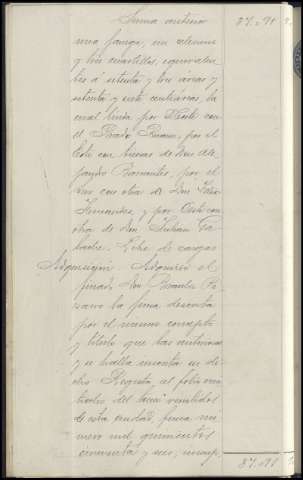 Suma anterior 87.291
una fanega, un celemin
y tres cuartillos, equivalen-
tes á setenta y dos areas y
setenta y siete centiáreas, la
cual linda por Norte con
el Prado por el
Este con tierras de Don Ale-
jandro por el
Sur con otra de Don
Fernandez, y por Oeste con
otra de Don Julian Ga-
Libre de cargas
Adquisicion Adquirió el
finado Don
la finca descrita
por el mismo concepto
y título que las anteriores
y se halla inscrita en di-
cho Registro, al folio
del tomo
de esta ciudad, finca nú-
mero mil quinientos
cincuenta y seis, inscrip-
87.291